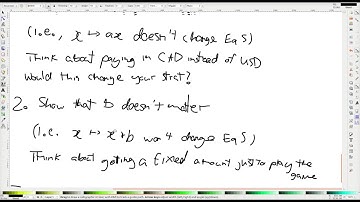 (I.e., x ↦ ax doesn't change Eq S)
Think about paying in CAD instead of USD
Would this change your strat?
2. Show that b doesn't matter
(I.e. x ↦ x+b won't change Eq S)
Think about getting a fixed amount just to play the
game